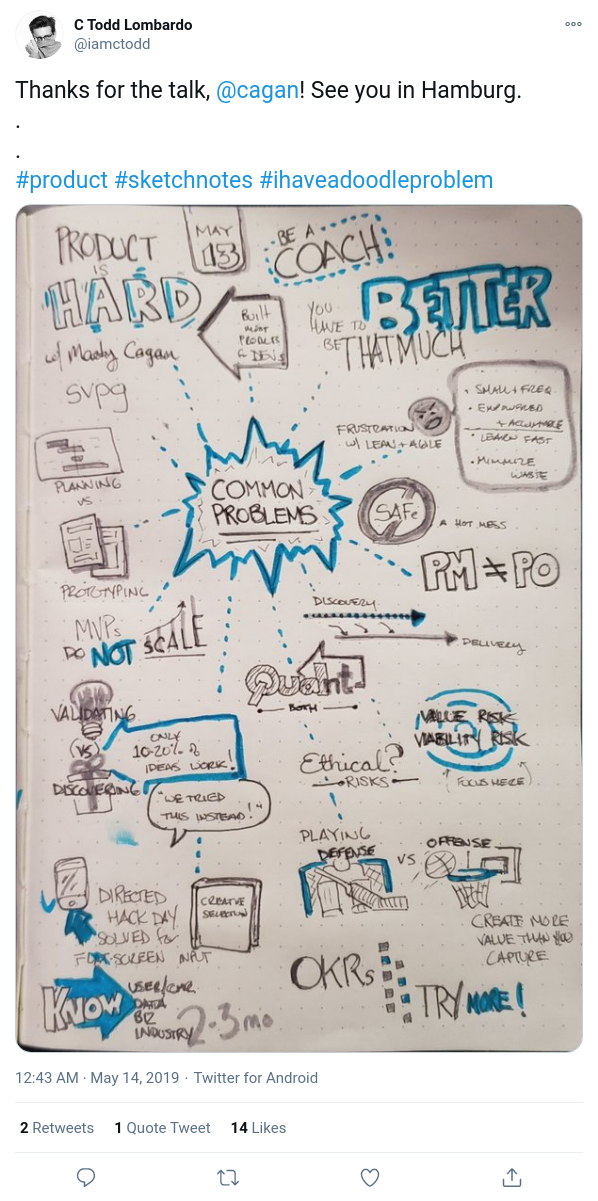 C Todd Lombardo
@iamctodd
Thanks for the talk, @cagan! See you in Hamburg.
.
.
#product #sketchnotes #ihaveadoodleproblem
PRODUCT
IS
HARD
w/ Marty Cagan
svpg
MAY
13
BE A
COACH
BUILT
PRODUCTS
& DEVS
YOU
HAVE TO
BE
BETTER
THAT MUCH
FRUSTRATION
W/ LEAN + AGILE
• SMALL + FREQ.
• EMPOWERED
+ ACCOUNTABLE
• LEARN FAST
• MINIMIZE
WASTE
PLANNING
VS
PROTOTYPING
COMMON
PROBLEMS
SAFe
A HOT MESS
PM ≠ PO
MVPs
DO NOT SCALE
DISCOVERY
DELIVERY
Quant
BOTH
VALIDATING
(VS)
DISCOVERING
ONLY
10-20% of
IDEAS WORK!
"WE TRIED
THIS INSTEAD!"
VALUE RISK
VIABILITY RISK
(FOCUS HERE)
Ethical?
RISKS
PLAYING
DEFENSE
VS
OFFENSE
CREATE MORE
VALUE THAN YOU
CAPTURE
DIRECTED
HACK DAY
SOLVED for
SCREEN INPUT
CREATIVE
SELECTION
KNOW
DATA
BIZ
INDUSTRY
2-3 mo
OKRs
TRY MORE!
12:43 AM · May 14, 2019 · Twitter for Android
2 Retweets 1 Quote Tweet 14 Likes